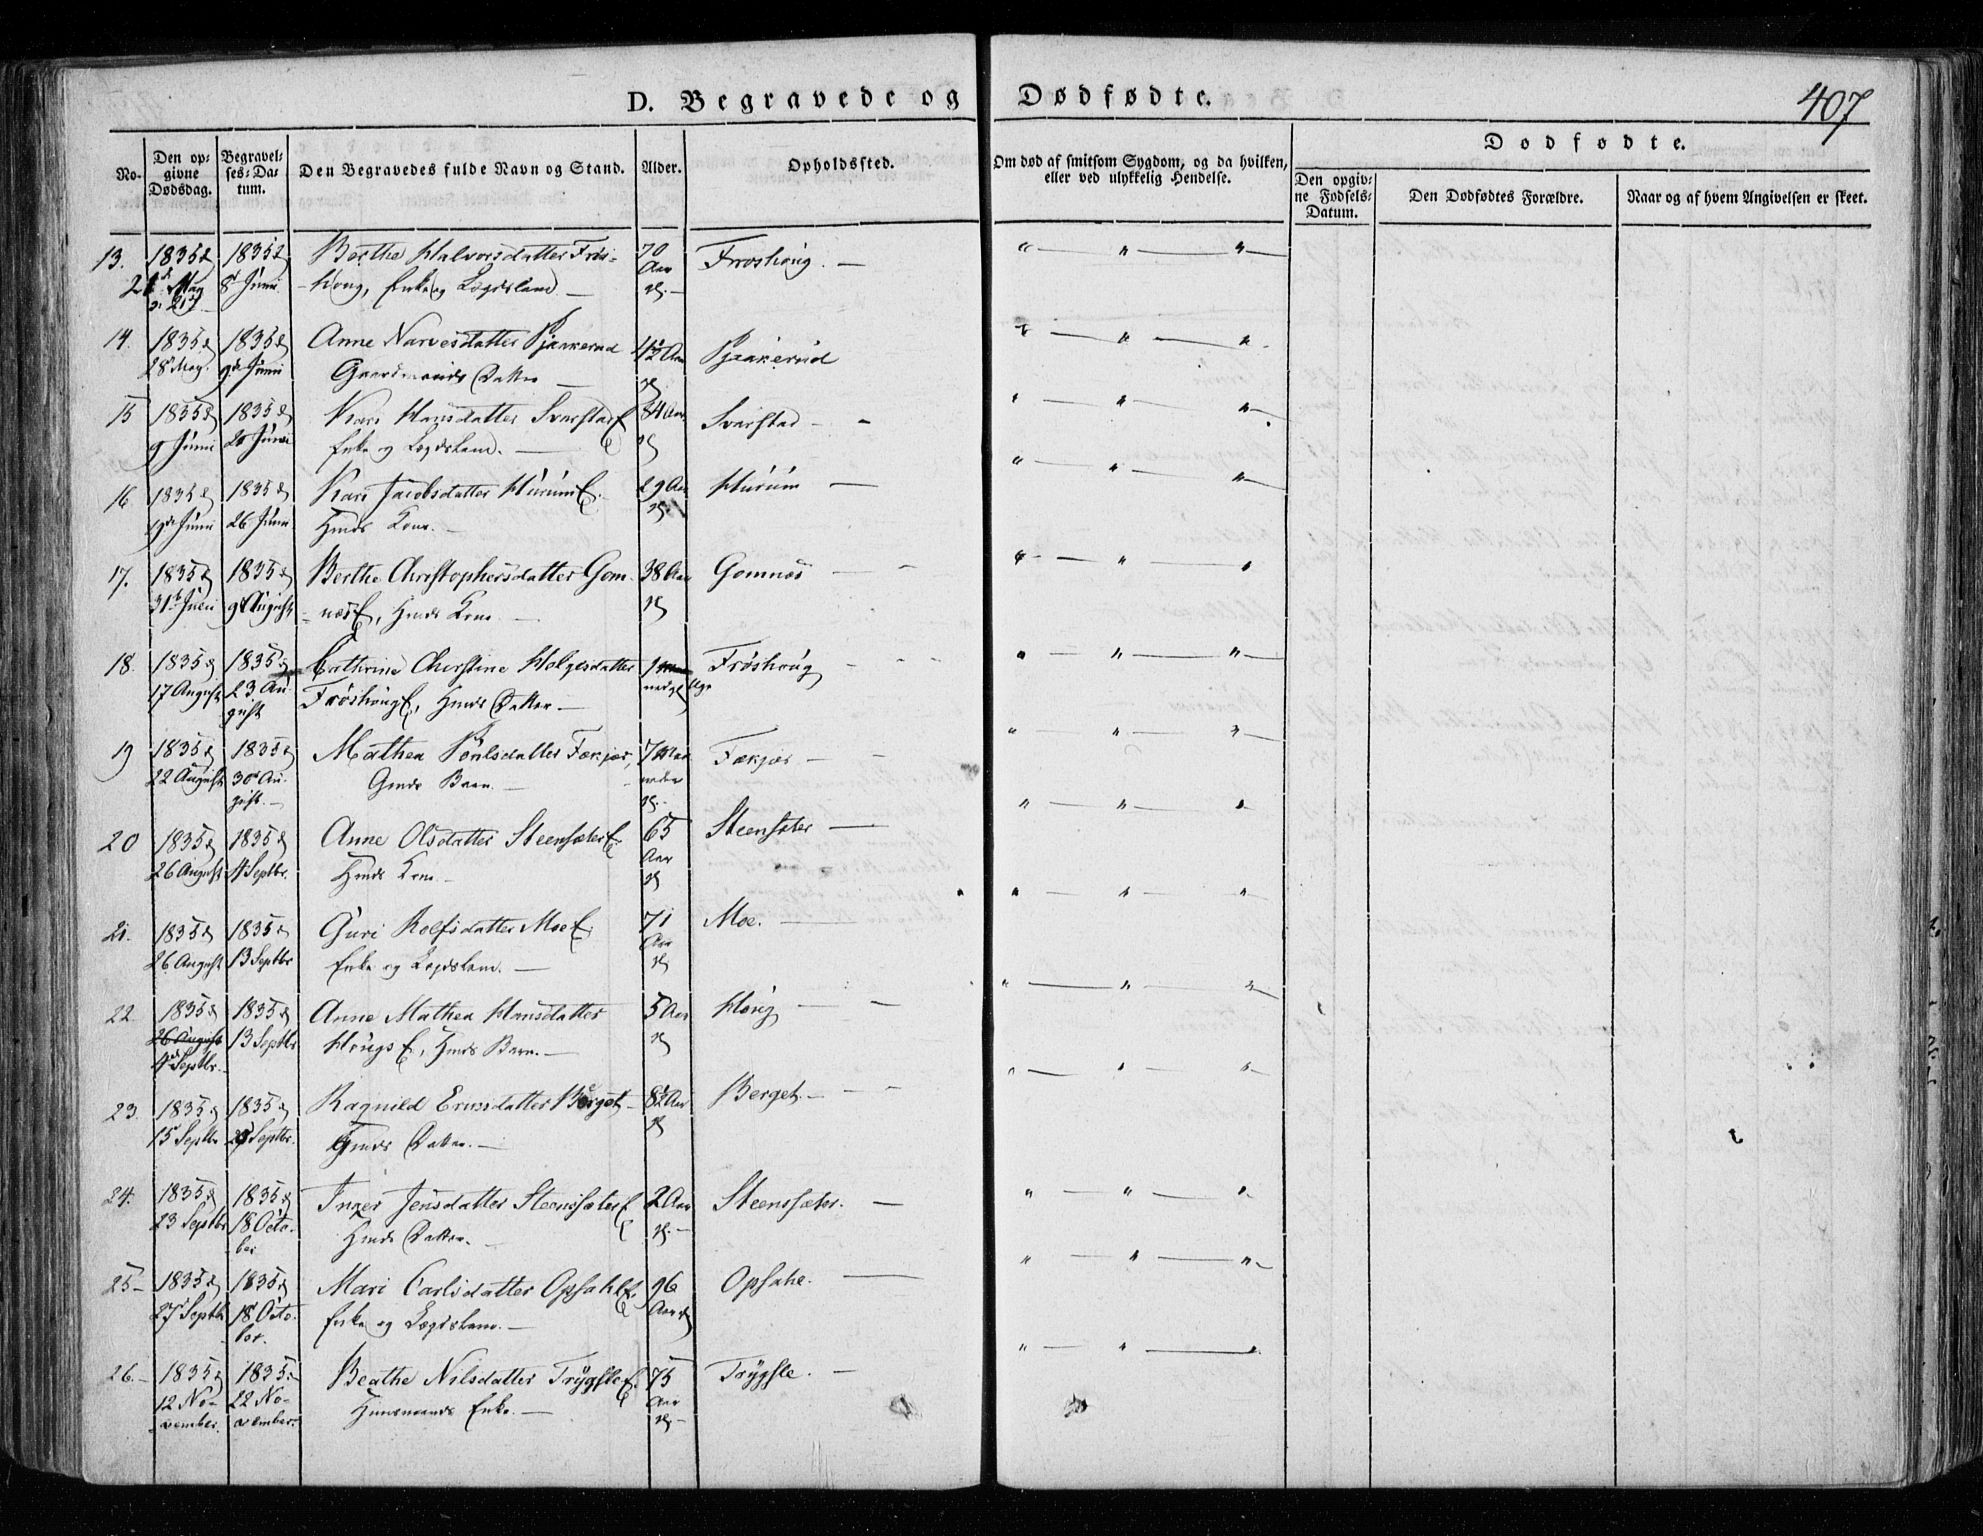 407
D. Begravede og Dødfødte.
No.
Den opgivne Dødsdag.
Begravelses-Datum.
Den Begravedes fulde Navn og Stand.
Alder.
Opholdssted.
Om død af smitsom Sygdom, og da hvilken, eller ved ulykkelig Hendelse.
Dødfødte.
Den opgivne Fødsels-Datum.
Den Dødfødtes Forældre.
Naar og af hvem Angivelsen er skeet.
13. 1835 1835 Berthe Halvorsdatter Frøs- 70 Frøshoug. — " — " — "
May 8 Juni -houg, Enke og Lægdslem. — Aar
14. 1835 1835 Anne Narvesdatter Pjaakerud Aar Pjaakerud " — " — "
28 May. 9de Juni Gaardmands Datter —
15 1835 1835 Kari Hansdatter Svarstad 84 Aar Svarstad — " — " — "
9 Juni 20 Juni Enke og Lægdslem. —
16 1835 1835 Kari Jacobsdatter Hurum 29 Aar Hurum " — " — "
Juni 26 Juni Hmds Kone. —
17. 1835 1835 Berthe Christophersdatter Gom- 38 Aar Gomnæs — " — " — "
31 9 August -næs, Hmds Kone —
18. 1835 1835 Cathrine Christine Holgesdatter 1 Frøshoug — " — " — "
17 August 23 Au- Frøshoug, Hmds Datter —
gust
19 1835 1835 Mathea Poulsdatter Fækjær, 7 Maa- Fækjær — " — " — "
22 August 30 Au- Gmds Barn. — neder
gust. —
20 1835 1835 Anne Olsdatter Steensæter 65 Steensæter — " — " — "
26 August 4 Septbr. Hmds Kone — Aar
21. 1835 1835 Guri Rolfsdatter Moe 71 Moe. — " — " — "
26 August 13 Septbr Enke og Lægdslem. — Aar
22. 1835 1835 Anne Mathea Hansdatter 5 Aar Houg — " — " — "
26 August 13 Septbr Hougs, Hmds Barn. —
4 Septbr.
23. 1835 1835 Ragnild Berget — Aar Berget. — " — " — "
15 Septbr Septbr. Gmds Datter. —
24. 1835 1835 Inger Jensdatter Steensæter 2 Aar Steensæter. — " — " — "
23 Septbr 18 Octo- Hmds Datter. —
ber
25 — 1835 1835 Mari Carlsdatter Opsahl 96 Opsahl. — " — " — "
27 Septbr 18 Octo- Enke og Lægdslem. — Aar
ber.
26. — 1835 1835 Beathe Nilsdatter Trygsle 75 Trygsle. — " — " — "
12 No- 22 No- Huusmands Enke. — Aar
vember. vember.